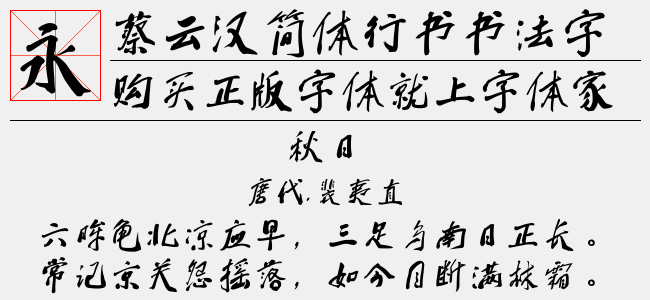 永
蔡云汉简体行书书法字
购买正版字体就上字体家
秋日
唐代.裴夷直
六眸龟北凉应早，三足乌南日正长。
常记京关怨摇落，如今目断满林霜。